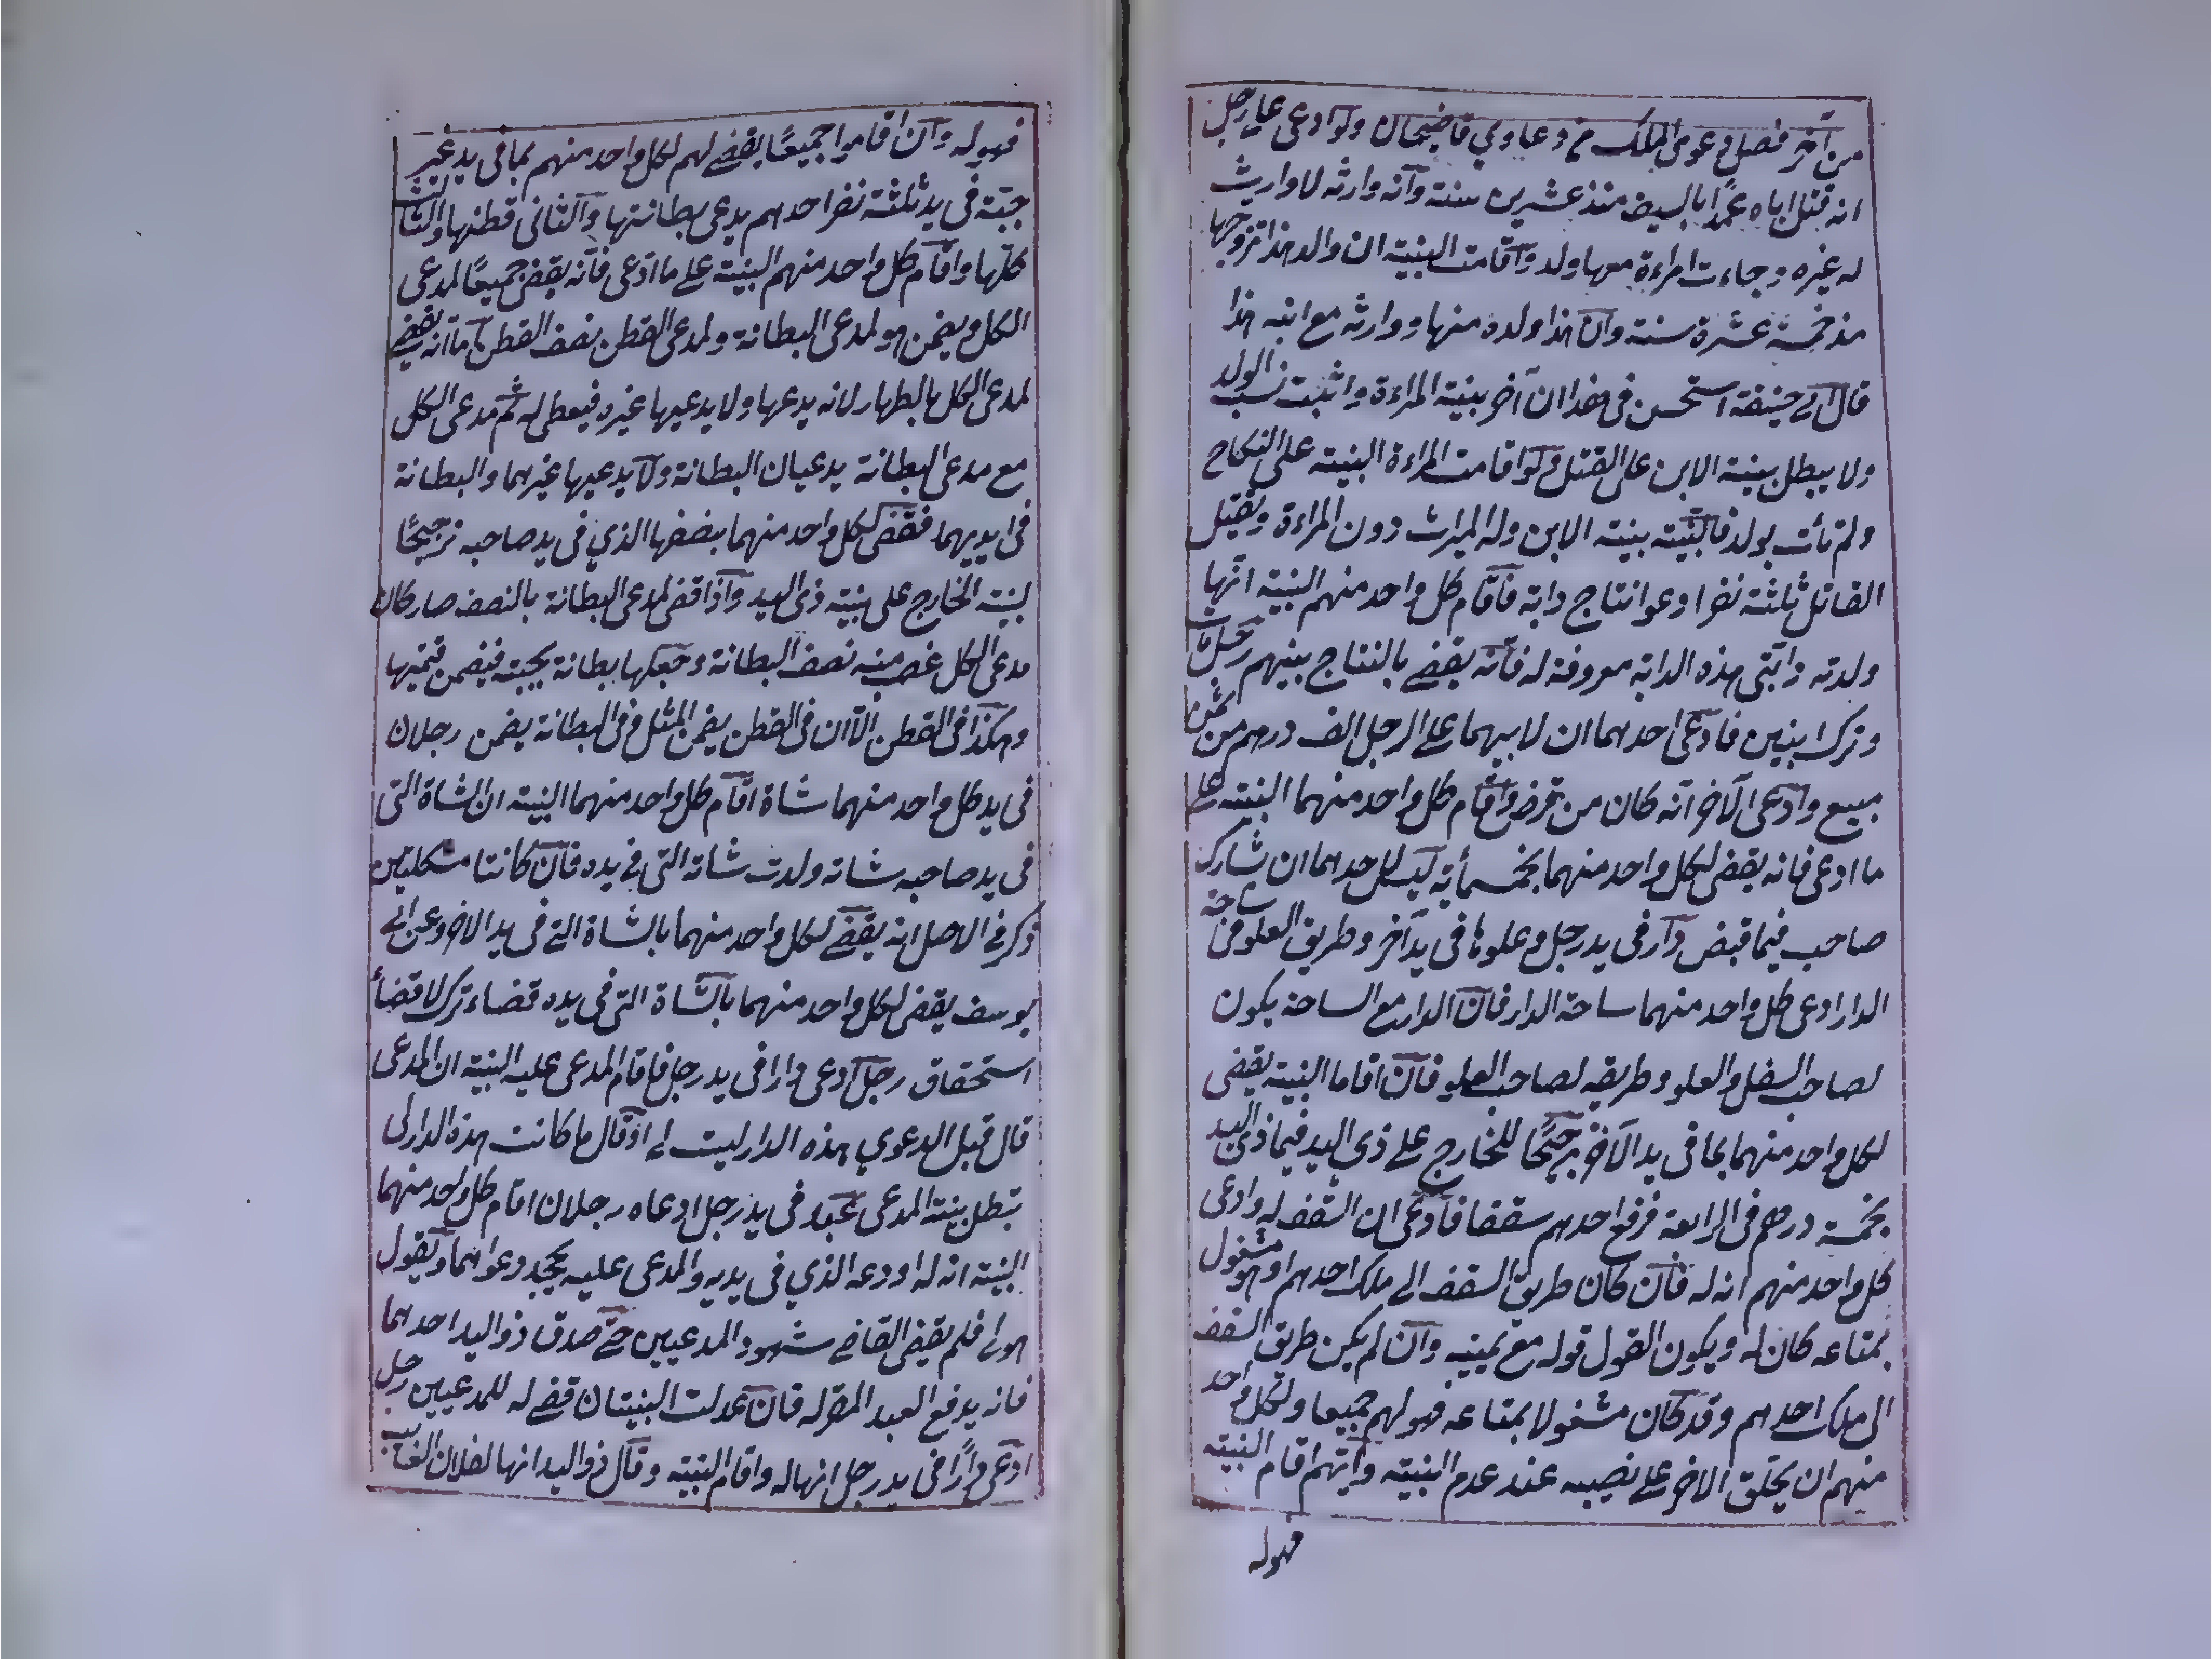 من آخر فصل دعوى الملك من دعاوي قاضيخان ولو ادعى على رجل
انه قتل اباه عمدا بالسيف منذ عشرين سنة وآنه وارثه لا وارث
له غيره وجاءت امراءة معها ولد واقامت البينة ان والد هذا تزوجها
مذ خمسة عشرة سنة وان هذا ولده منها ووارثه مع ابنه هذا
قال ابي حنيفة استحسن في هذا ان آخر بينة المراءة واثبت نسب الولد
ولا يبطل بينة الابن على القتل ولو اقامت المراءة البينة على النكاح
ولم تأت بولد فالبينة بينة الابن وله الميراث دون المراءة ويقتل
القاتل ثلثة نفر ادعوا نتاج دابة فاقام كل واحد منهم البينة انها
ولدته دابتى هذه الدابة معروفة له فانه يقضے بالنتاج بينهم رجل مات
وترك ابنين فادعى احدهما ان لابيهما على الرجل الف درهم من ثمن
مبيع وادعى الآخر انه كان من قرض واقام كل واحد منهما البينة على
ما ادعى فانه يقضى لكل واحد منهما بخمسمأية ليس لاحدهما ان شارك
صاحب فيما قبض دار فى يد رجل وعلوها فى يد آخر وطريق العلو فى ساحة
الدار ادعى كل واحد منهما ساحة الدار فان الدار مع الساحة يكون
لصاحب السفل والعلو وطريقه لصاحب العلو فان اقاما البينة يقضى
لكل واحد منهما بما فى يد الآخر ترجيحًا للخارج على ذي اليد فيما ذى اليد
بخمسة درهم فى الرابعة فرفع احدهم سقفا فادعى ان السقف له وادعى
كل واحد منهم انه له فان كان طريق السقف الى ملك احدهم او هو مشغول
بمتاعه كان له ويكون القول قوله مع يمينه وان لم يكن طريق السقف
الى ملك احدهم وقد كان مشغولا بمتاعه فهو لهم جميعا ولكل واحد
منهم ان يحلق الاخر على نصيبه عند عدم البينة وايهم اقام البينة
فهو له
فهو له وان اقاموا جميعًا يقضے لهم لكل واحد منهم بما فى يد غير
جبة فى يد ثلثة نفر احدهم يدعى بطانتها والثانى قطنها والثالث
كلها واقام كل واحد منهم البينة على ما ادعى فانه يقضى جميعًا لمدعى
الكل ويضمن هو لمدعى البطانة ولمدعى القطن نصف القطن اما انه يقضے
لمدعى الكل بالطهار لانه يدعها ولا يدعيها غيره فيعطى له ثم مدعى الكل
مع مدعى البطانة يدعيان البطانة ولا يدعيها غيرهما والبطانة
فى ايديهما فقضى لكل واحد منهما بنصفها الذي فى يد صاحبه ترجيحًا
لبينة الخارج على بينة ذى اليد واذا قضى لمدعى البطانة بالنصف صار كان
مدعى الكل غصب منه نصف البطانة وجعلها بطانة بجبته فيضمن قيمتها
وهكذا فى القطن الا ان فى القطن يضمن المثل وفى البطانة يضمن رجلان
فى يد كل واحد منهما شاة اقام كل واحد منهما البينة ان الشاة التى
فى يد صاحبه شاته ولدت شاته التى فى يده فان كانتا مشكلتين
ذكر فے الاصل انه يقضے لكل واحد منهما بالشاة التے فى يد الاخر وعن ابے
يوسف يقضى لكل واحد منهما بالشاة التى فى يده قضاء ترك لا قضأ
استحقاق رجل ادعى دارا فى يد رجل فاقام المدعى عليه البينة ان المدعى
قال قبل الدعوي هذه الدار ليست لے او قال ما كانت هذه الدار لى
تبطل بينة المدعى عبد فى يد رجل ادعاه رجلان اقام كل واحد منهما
البينة انه له اودعه الذي فى يديه والمدعى عليه يجحد دعواهما ويقول
هو لے فلم يقض القاضے شهود المدعيين حتى صدق ذو اليد احدهما
فانه يدفع العبد المقر له فان عدلت البينتان قضے له للمدعيين رجل
ادعى دارًا فى يد رجل انها له واقام البينة وقال ذو اليد انها لفلان الغائب